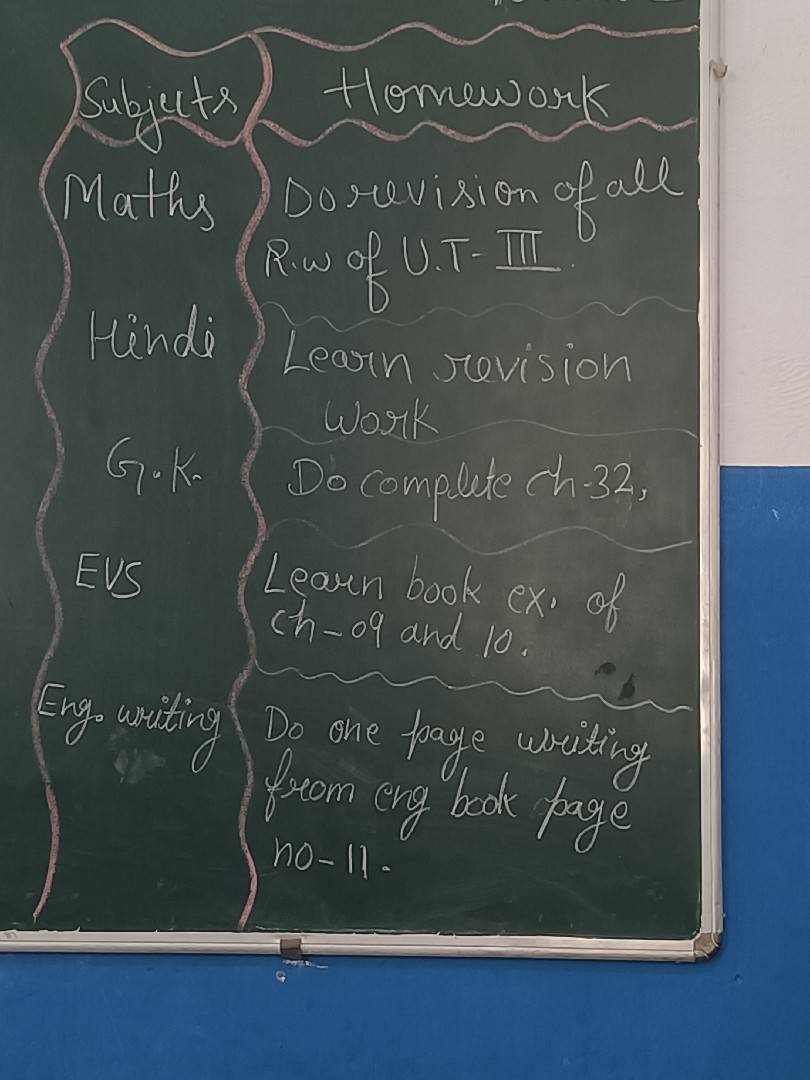 Subjects Homework
Maths Do revision of all
R.w of U.T- III.
Hindi Learn revision
work
G.K. Do complete ch-32,
EVS Learn book ex. of
ch-09 and 10.
Eng. writing Do one page writing
from eng book page
no-11.